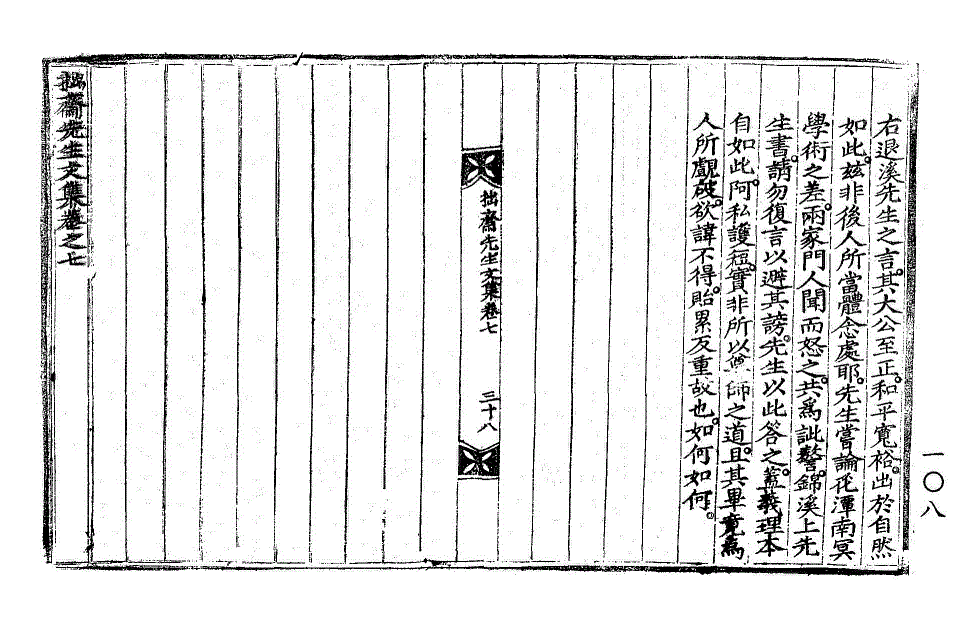 右退溪先生之言。其大公至正。和平寬裕。出於自然
如此。玆非後人所當體念處耶。先生嘗論花潭南冥
學術之差。兩家門人聞而怒之。共爲訿謷。錦溪上先
生書。請勿復言以避其謗。先生以此答之。蓋義理本
自如此。阿私護短。實非所以 師之道。且其畢竟爲
人所覰破。欲諱不得。貽累反重故也。如何如何。
拙齋先生文集卷七
三十八
拙齋先生文集卷之七
一〇八